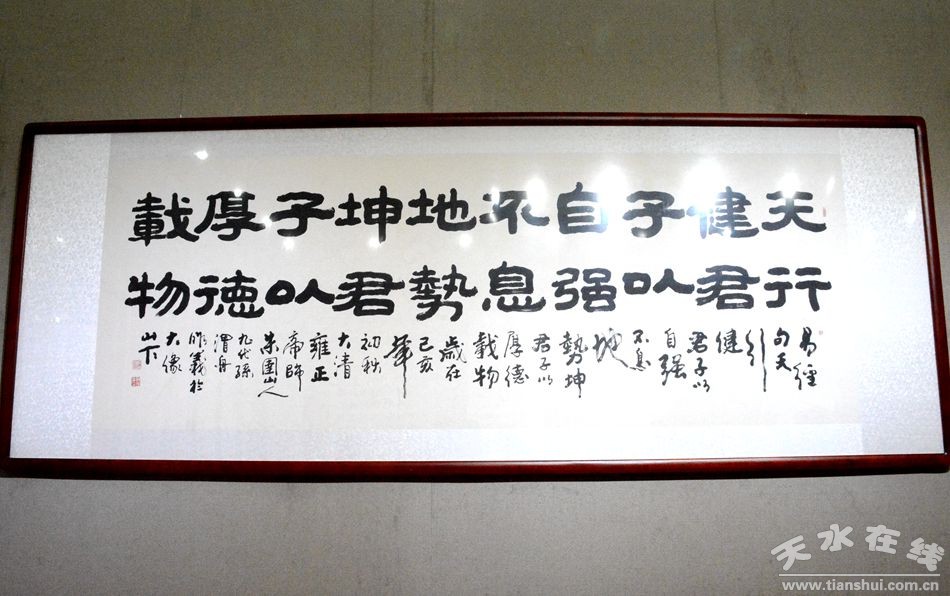 天行
健君
子以
自强
不息
地勢
坤君
子以
厚德
載物
易經
句天
行
健
君子以
自强
不息
地
勢坤
君子以
厚德
載物
歲在
己亥
初秋
大清
雍正
帝師
朱圉山人
九代孫
渭舟
於
大像
山下
天水在线
www.tianshui.com.cn